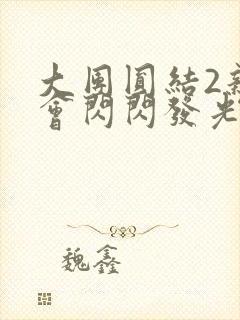 大團圓結2新
會閃閃發光
魏鑫